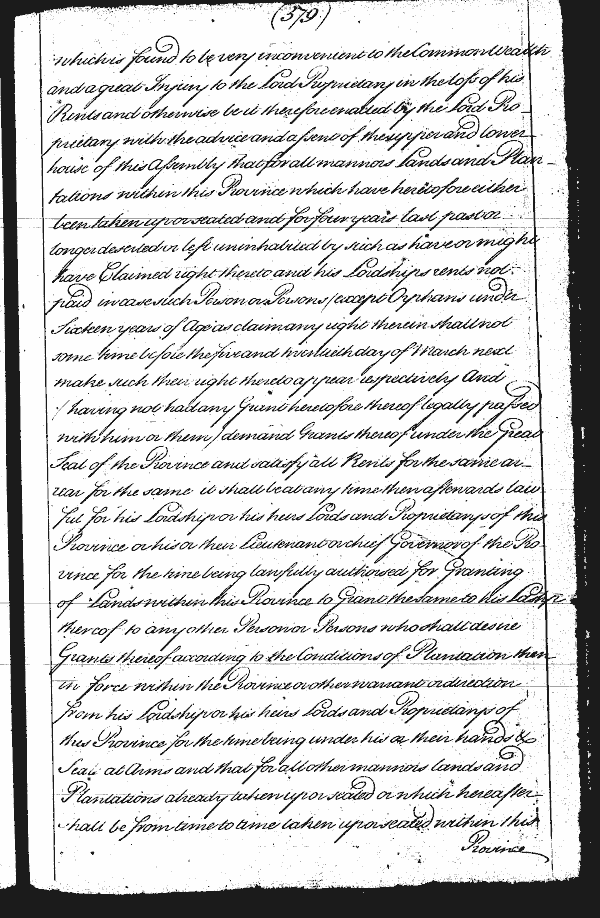 (579)
which is found to be very inconvenient to the Common Wealth
and a great Injury to the Lord Proprietary in the loss of his
Rents and otherwise be it therefore enacted by the Lord Pro_
prietary with the advice and assent of the upper and lower
house of this Assembly that for all mannors Lands and Plan_
tations within this Province which have heretofore either
been taken up or seated and for four years last past or
longer deserted or left uninhabited by such as have or might
have Claimed right thereto and his Lordships rents not
paid in case such Person or Persons /except Orphans under
Sixteen years of Age as claim any right therein shall not
some time before the five and twentieth day of March next
make such their right thereto appear respectively And
/having not had any Grant heretofore thereof legally passed
with him or them/ demand Grants thereof under the Great
Seal of the Province and satisfy all Rents for the same ar_
rear for the same it shall be at any time then afterwards law
ful for his Lordship or his heirs Lords and Proprietarys of this
Province or his or their Lieutenant or chief Governor of the Pro
vince for the time being lawfully authorised for Granting
of Lands within this Province to Grant the same to his
thereof to any other Person or Persons who shall desire
Grants thereof according to the Conditions of Plantation then
in force within the Province or other warrant or direction
from his Lordship or his heirs Lords and Proprietarys of
this Province for the time being under his or their hands &
Seal at Arms and that for all other mannors lands and
Plantations already taken up or seated or which hereafter
shall be from time to time taken up or seated within this
Province